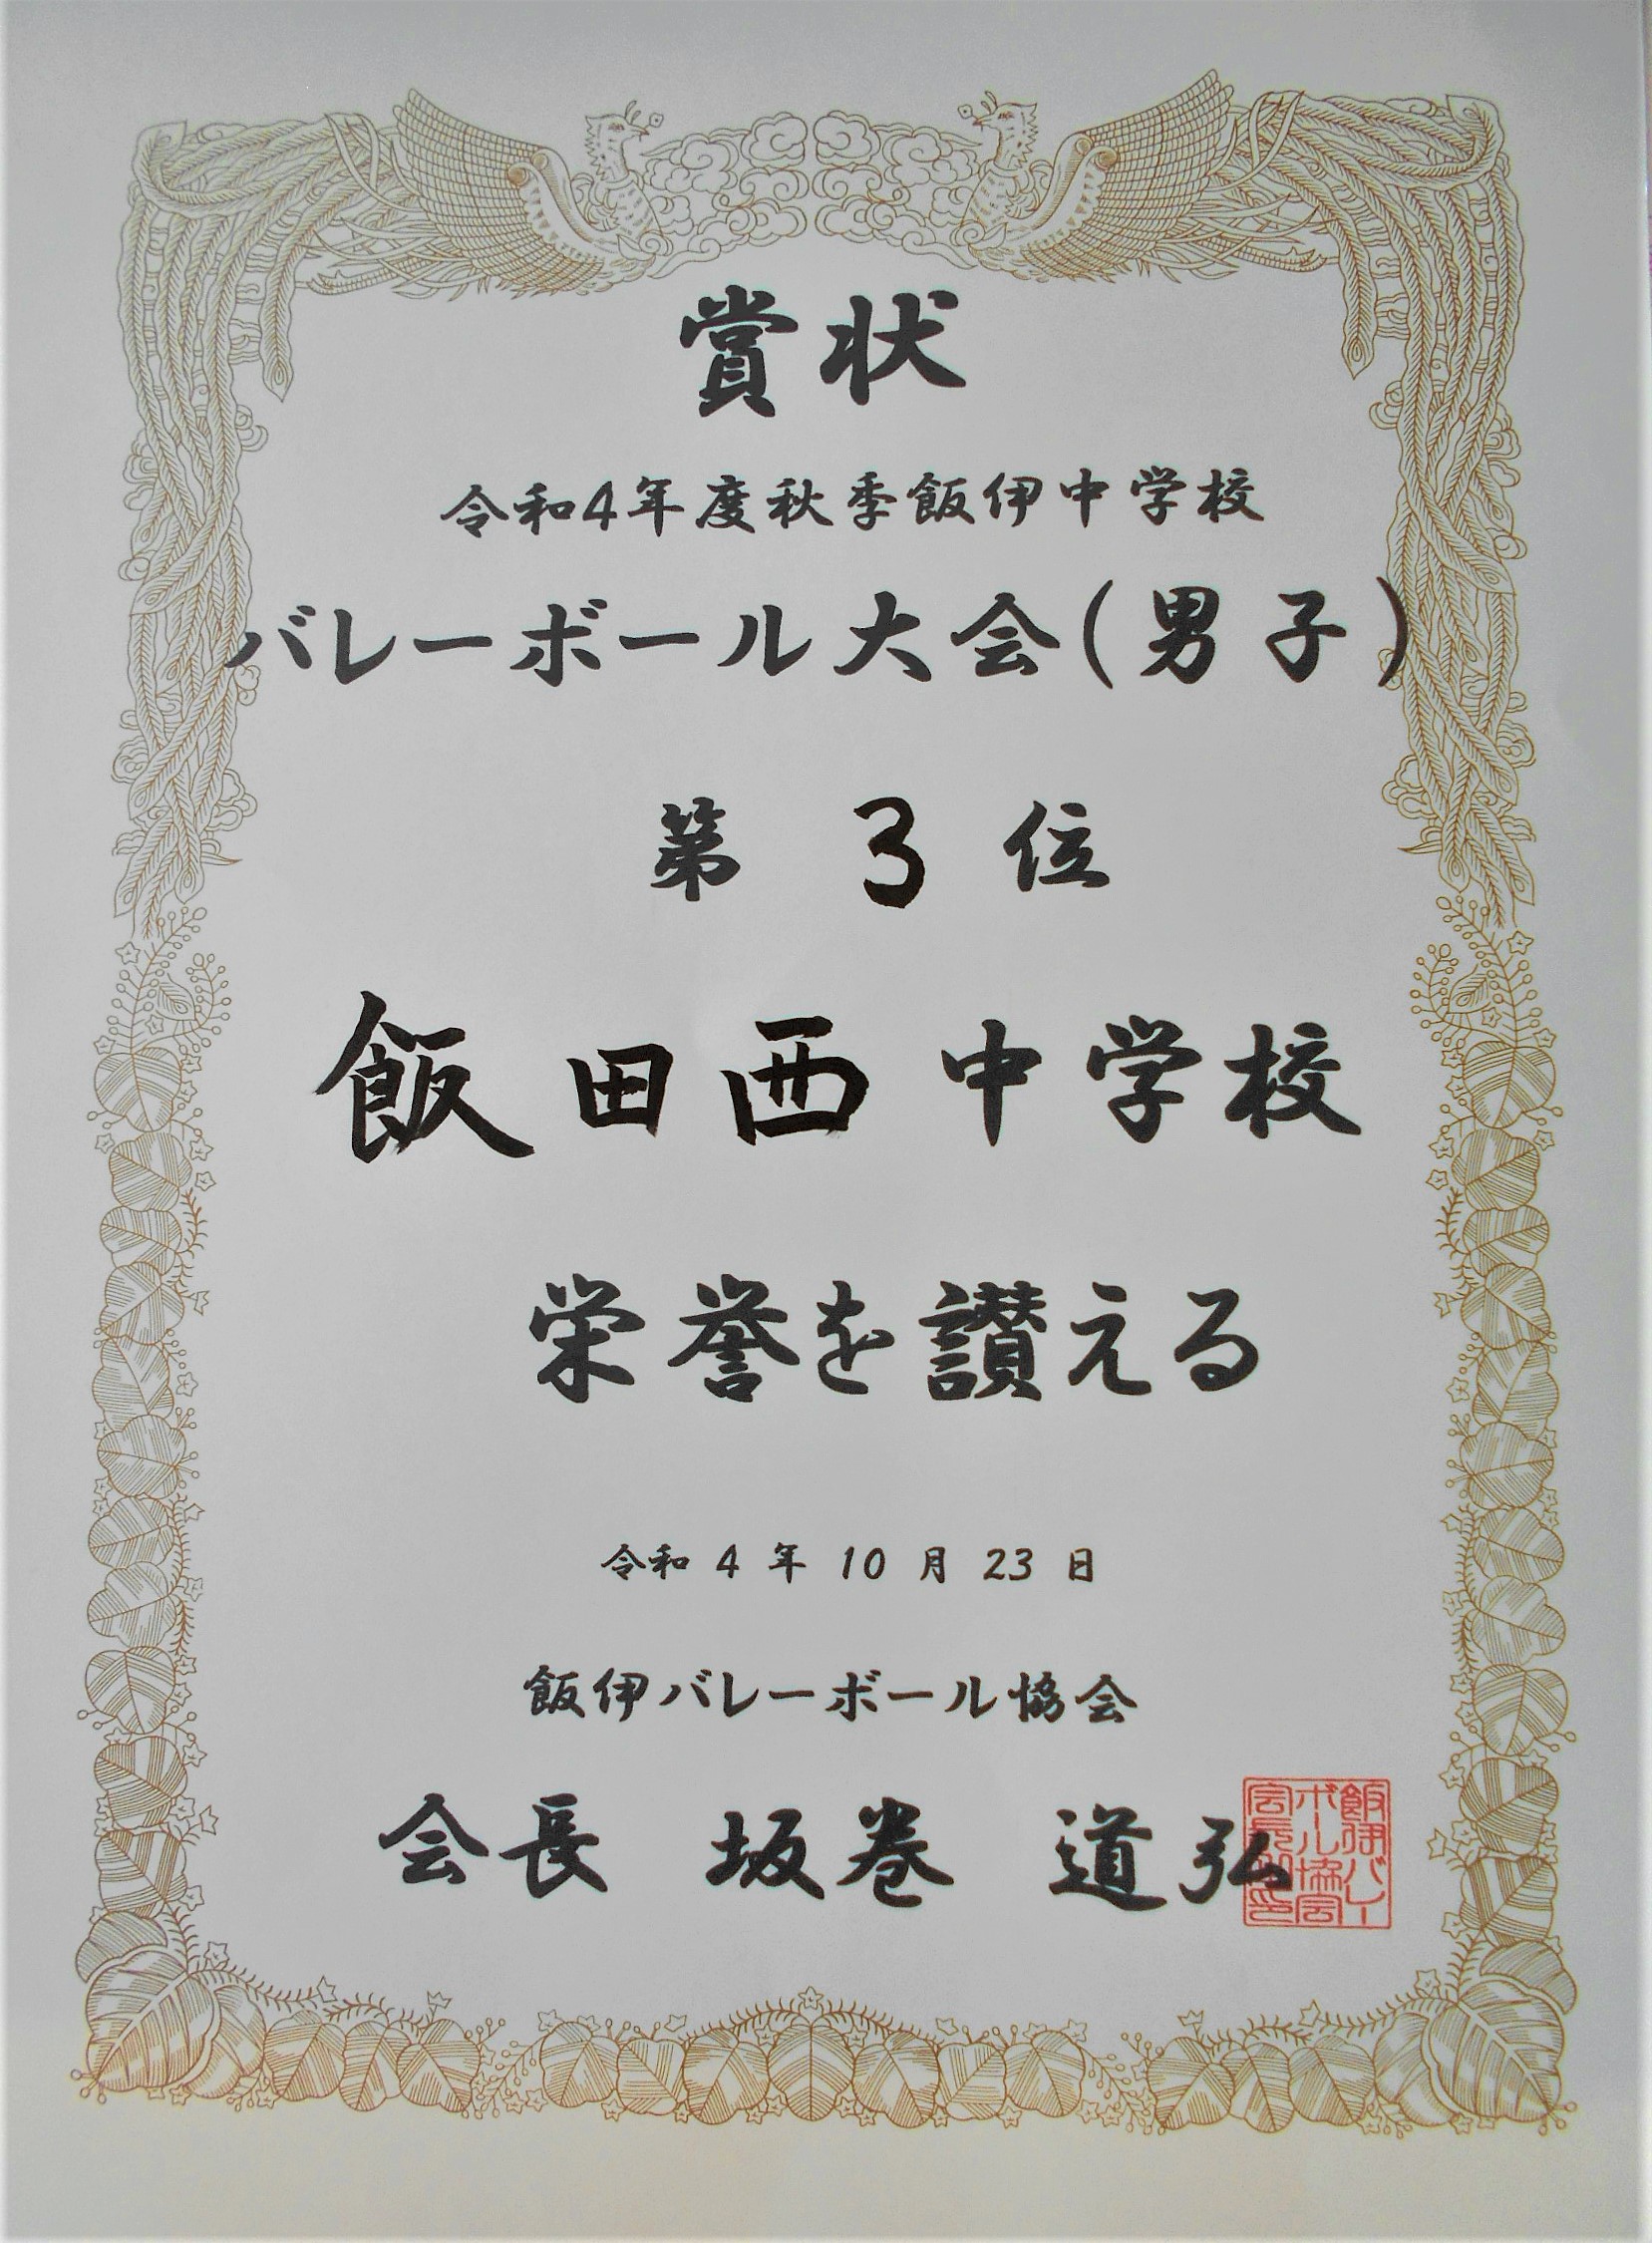 賞状
令和4年度秋季飯伊中学校
バレーボール大会(男子)
第 3 位
飯田西中学校
栄誉を讃える
令和 4 年 10 月 23 日
飯伊バレーボール協会
会長 坂巻 道弘
飯伊バレー
ボール協会